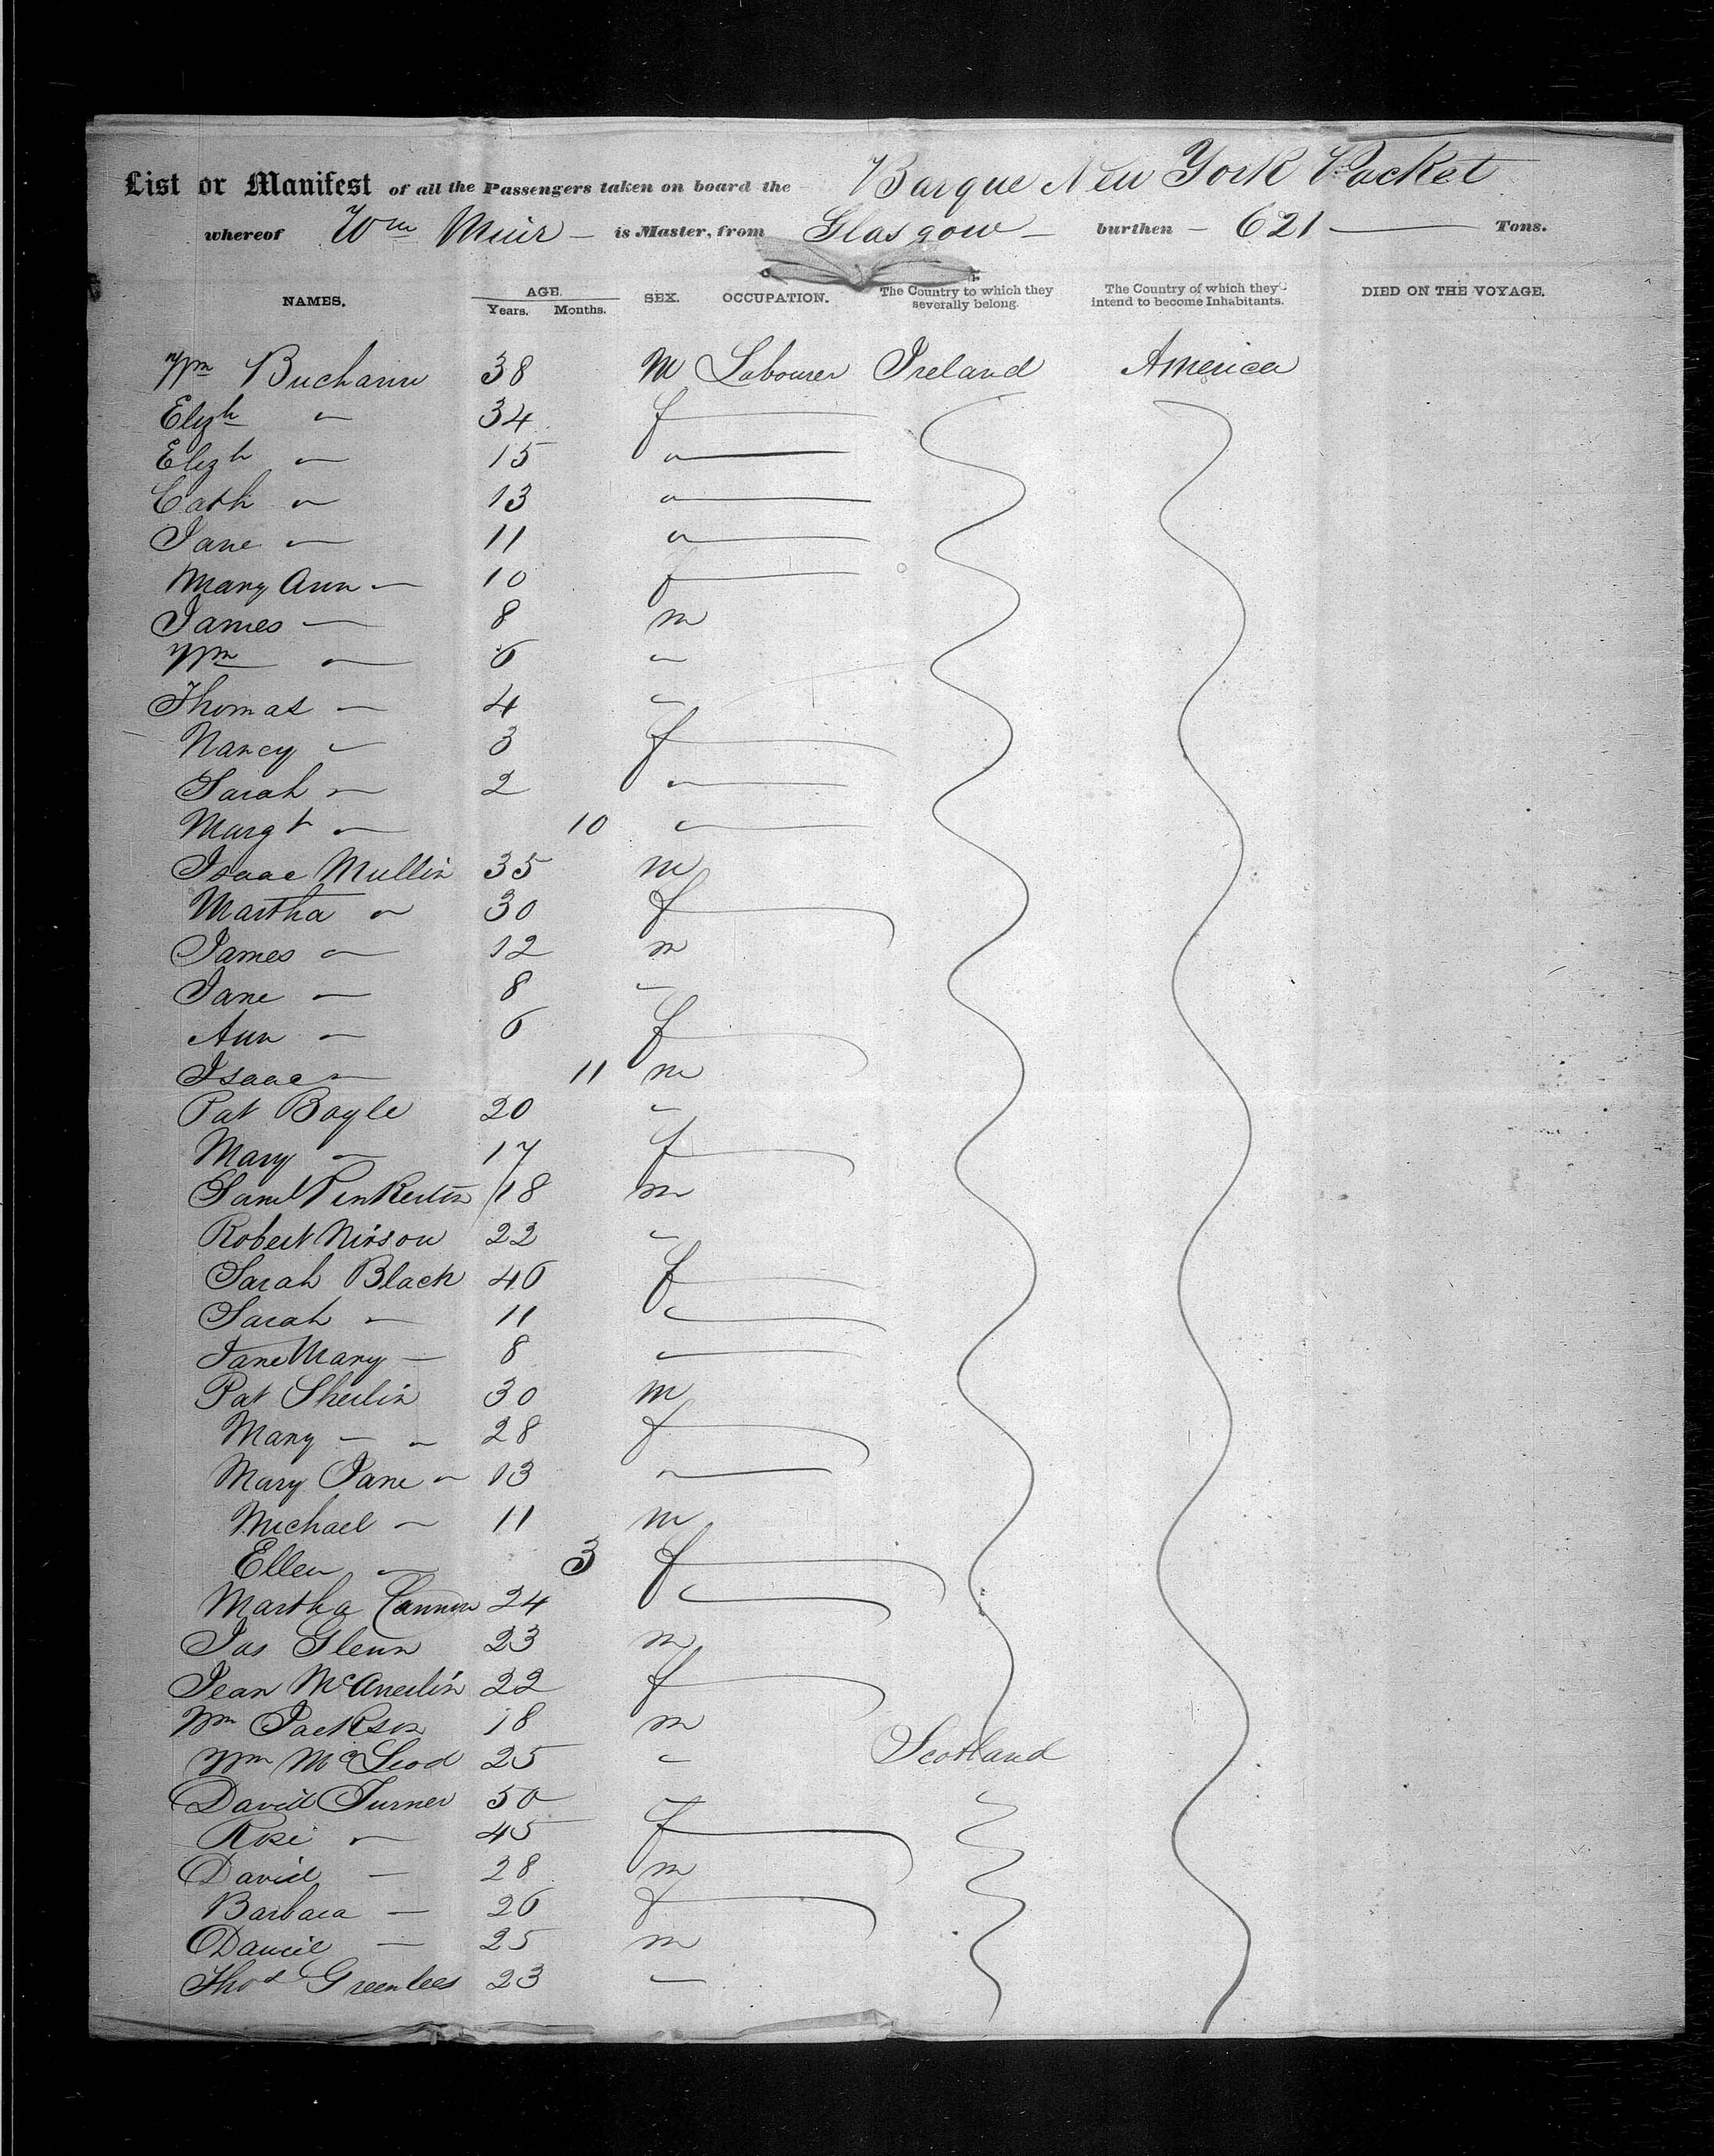 List or Manifest of all the Passengers taken on board the Barque New York Packet
whereof Wm Muir is Master, from Glasgow burthen 621 Tons.
NAMES. AGE. Years. Months. SEX. OCCUPATION. The Country to which they severally belong. The Country of which they intend to become Inhabitants. DIED ON THE VOYAGE.
Wm Buchann 38 M Labourer Ireland America
Elizh " 34 f
Elizh " 15 "
Cath " 13 "
Jane " 11 "
Mary Ann - 10 f
James - 8 m
Wm " 6 "
Thomas - 4 "
Nancy " 3 f
Sarah " 2 "
Margt " 10 "
Isaac Mullin 35 m
Martha " 30 f
James " 12 m
Jane - 8 "
Ann - 6 f
Isaac - 11 m
Pat Boyle 20 "
Mary - 17 f
Saml Pinkerton 18 m
Robert Nixson 22 "
Sarah Black 46 f
Sarah - 11 "
Jane Mary - 8 "
Pat Sheilin 30 m
Mary - " 28 f
Mary Jane " 13 "
Michael - 11 m
Ellen " 3 f
Martha Cannon 24 "
Jas Glenn 23 m
Jean McAneilin 22 f
Wm Jackson 18 m
Wm McLeod 25 " Scotland
David Turner 50
Rose " 45 f
David - 28 m
Barbara - 26 f
Daniel - 25 m
Thos Greenlees 23 "